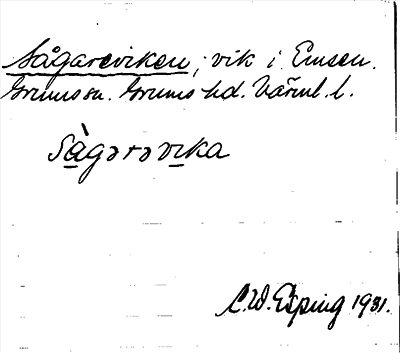 Sågareviken, vik i Emsen.
Grums sn. Grums hd. Värml. l.
Sàgərəvika
C.W. Esping 1931.